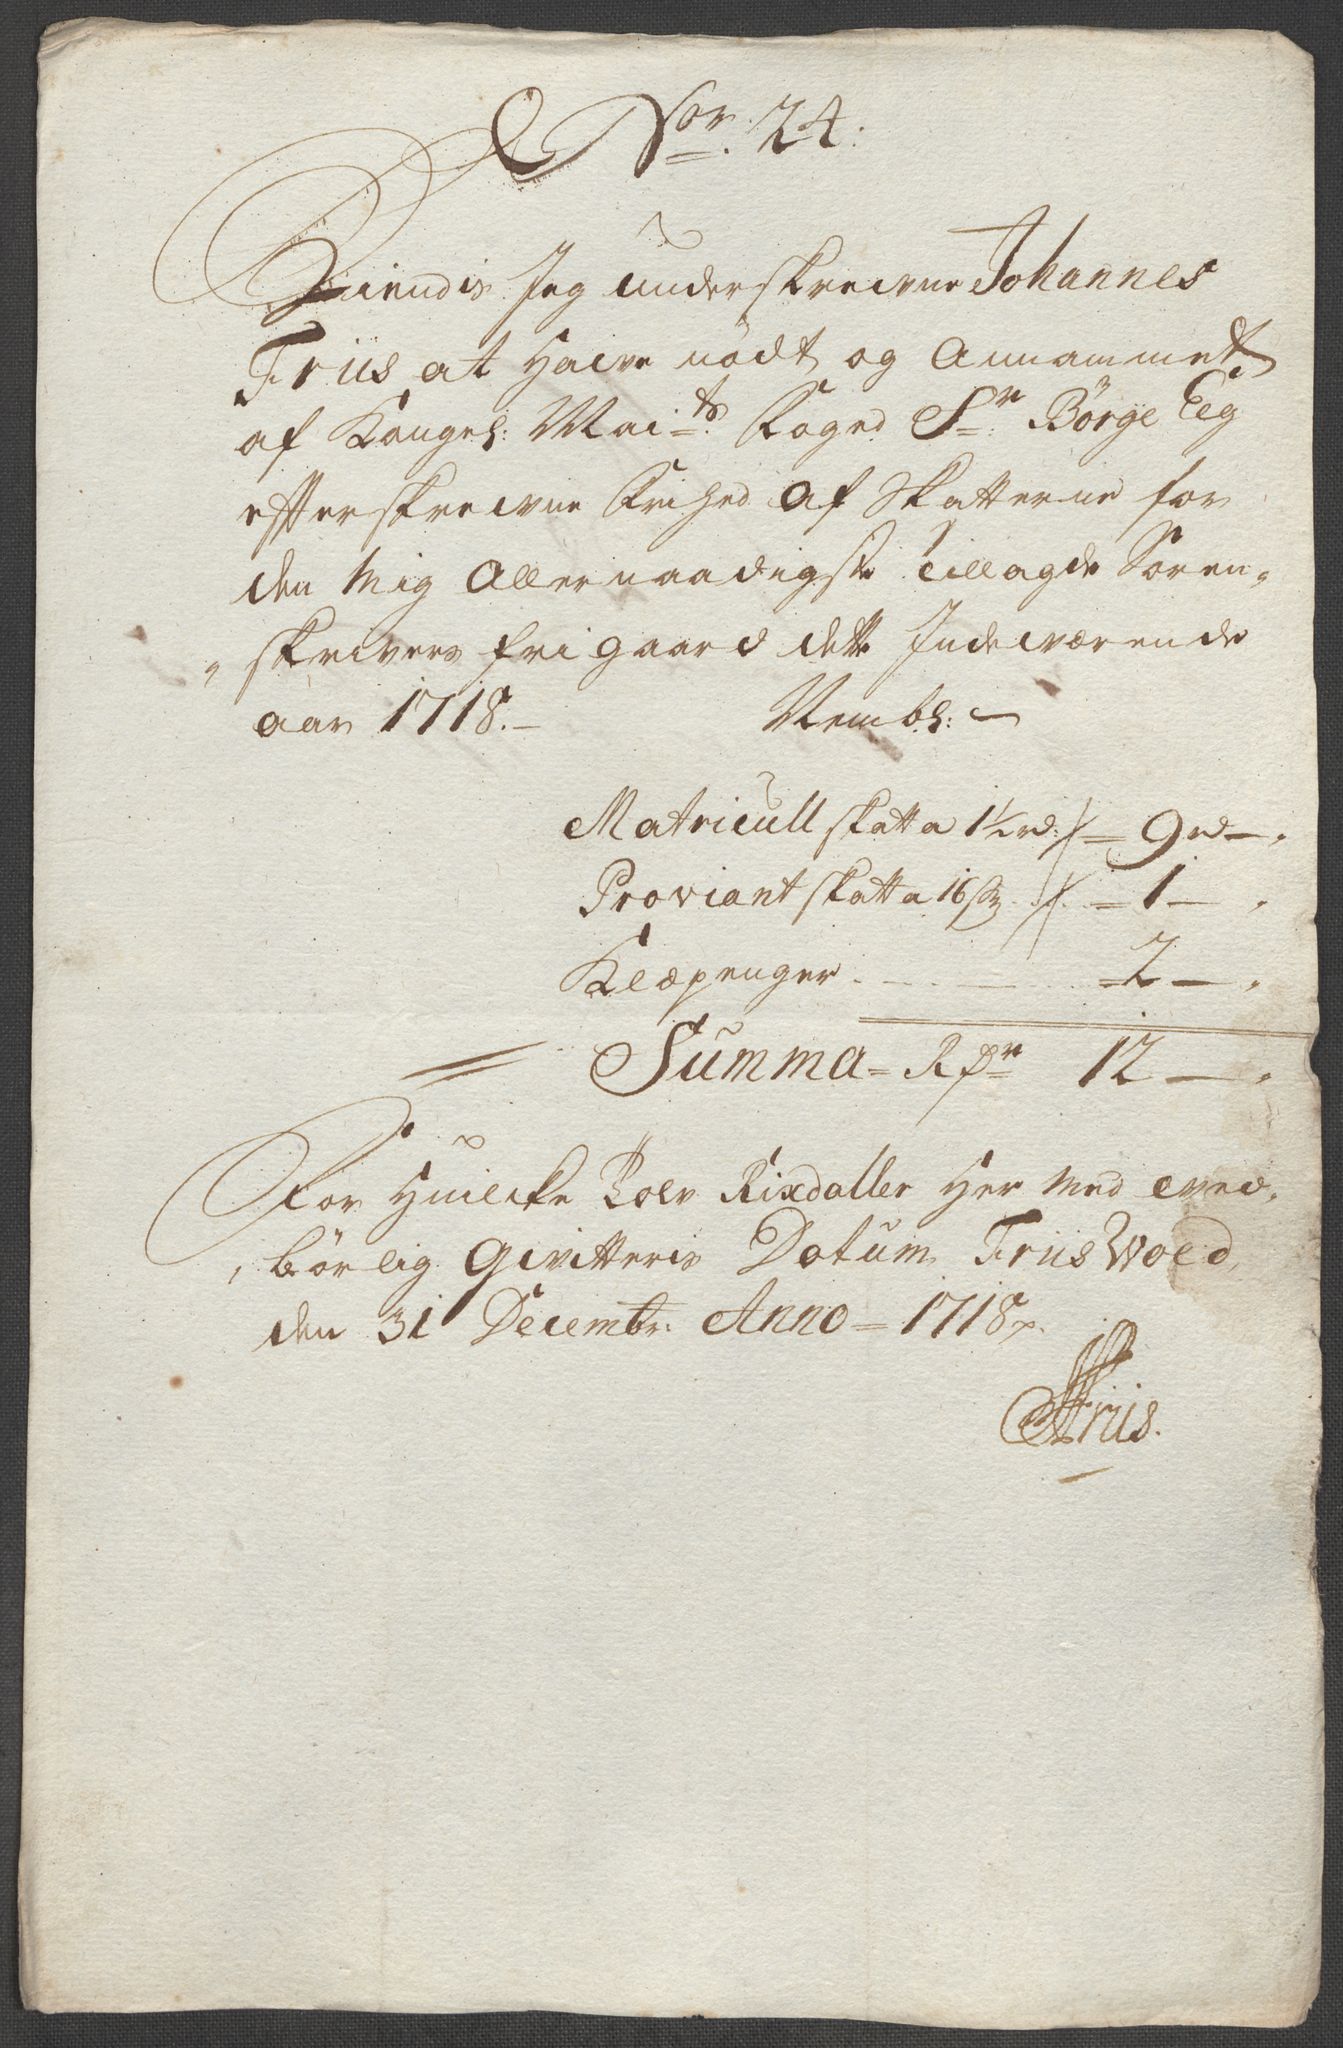 Nor. 24.
Kiendis Jeg underskrevne Johannes
Friis at Hawe nödt og Annammet
af Kongel: Mai:ts Foged Sr. Börge Eeg
efterskrevne Frihed af Skatterne for
den Mig Allernaadigste tillagde Soren-
skrivers frigaard dette Indeværende
aar 1718.– Nembl:
Matricull skatt a 1½ rd: – 9 rd –
Proviant skatt a 16 s – 1 –
Klæpenger – 2 –
Summa – Rdr 12 –
For Huilcke Tolv Rixdaller Her med tved-
börlig Qvitteris Datum Friis Wold
den 31 Decembr. Anno – 1718
JFriis.